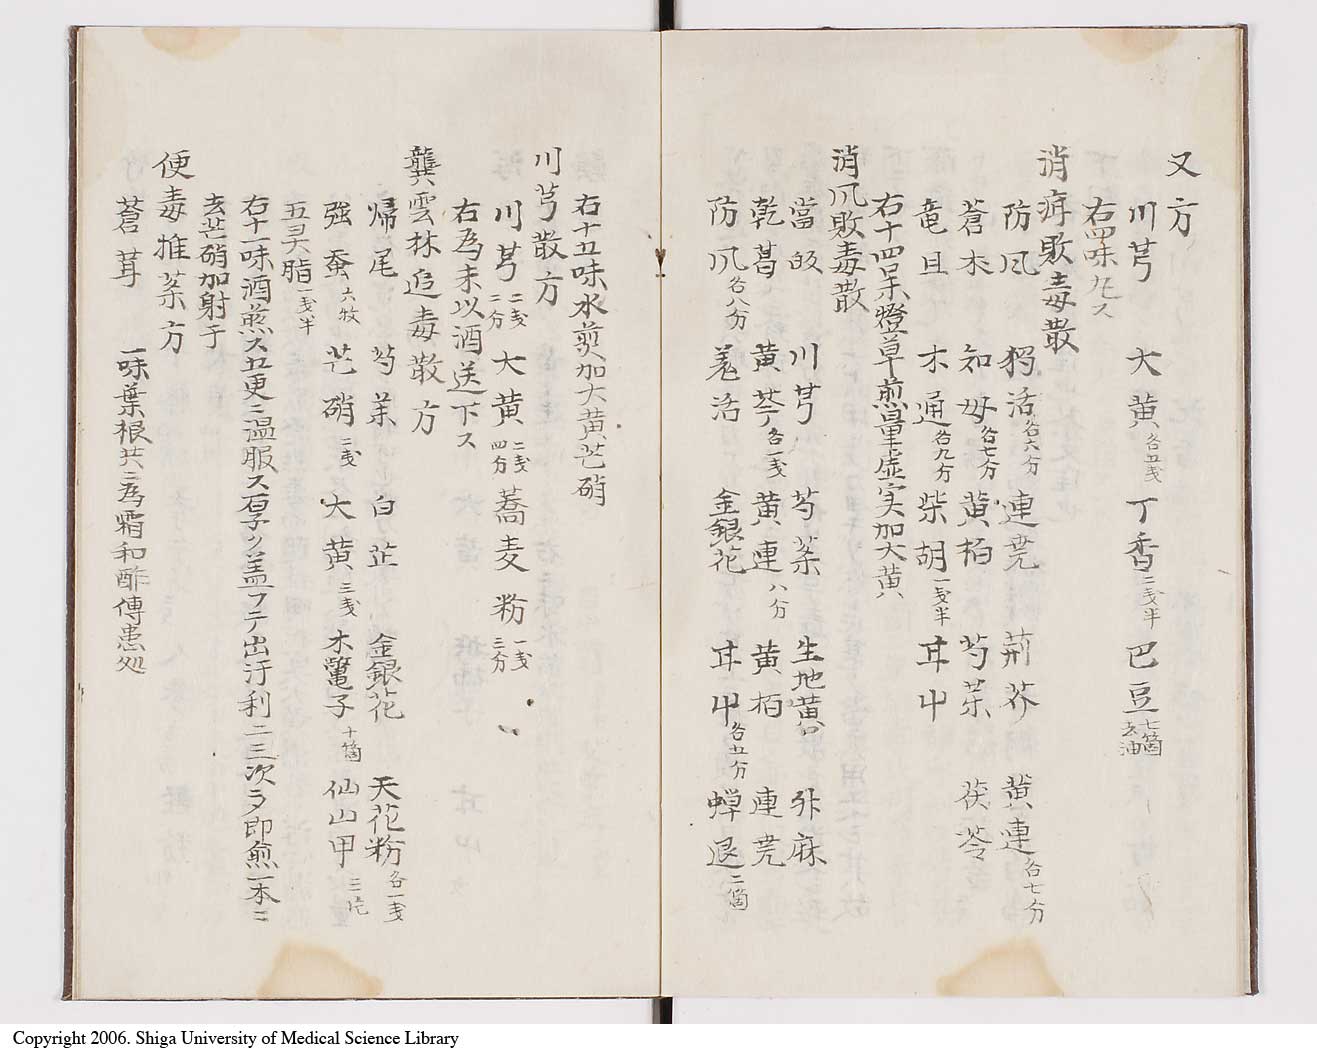 又方
川芎 大黄各五戔 丁香二戔半 巴豆七箇去油
右四味丸ス
消疳敗毒散
防风 獨活各六分 連壳 荊芥 黄連各七分
蒼朮 知母各七分 黄柏 芍薬 茯苓
竜且 木通各九分 柴胡一戔半 甘中
右十四味燈草煎量虚实加大黄
消风敗毒散
當皈 川芎 芍薬 生地黄 升麻
乾葛 黄芩各一戔 黄連八分 黄柏 連壳
防风各八分 羌活 金銀花 甘中各五分 蝉退二箇
右十五味水煎加大黄芒硝
川芎散方
川芎二戔二分 大黄二戔四分 蕎麦粉一戔三分
右為末以酒送下ス
龔雲林追毒散方
帰尾 芍薬 白芷 金銀花 天花粉各一戔
強蚕六牧 芒硝二戔 大黄三戔 木鱉子十箇 仙山甲三片
五灵脂一戔半
右十一味酒煎ス五更ニ温服ス厚ク盖フテ出汗利二三次ヲ即煎一本ニ
去芒硝加射干
便毒推薬方
蒼茸 一味葉根共ニ為霜和酢傅患処